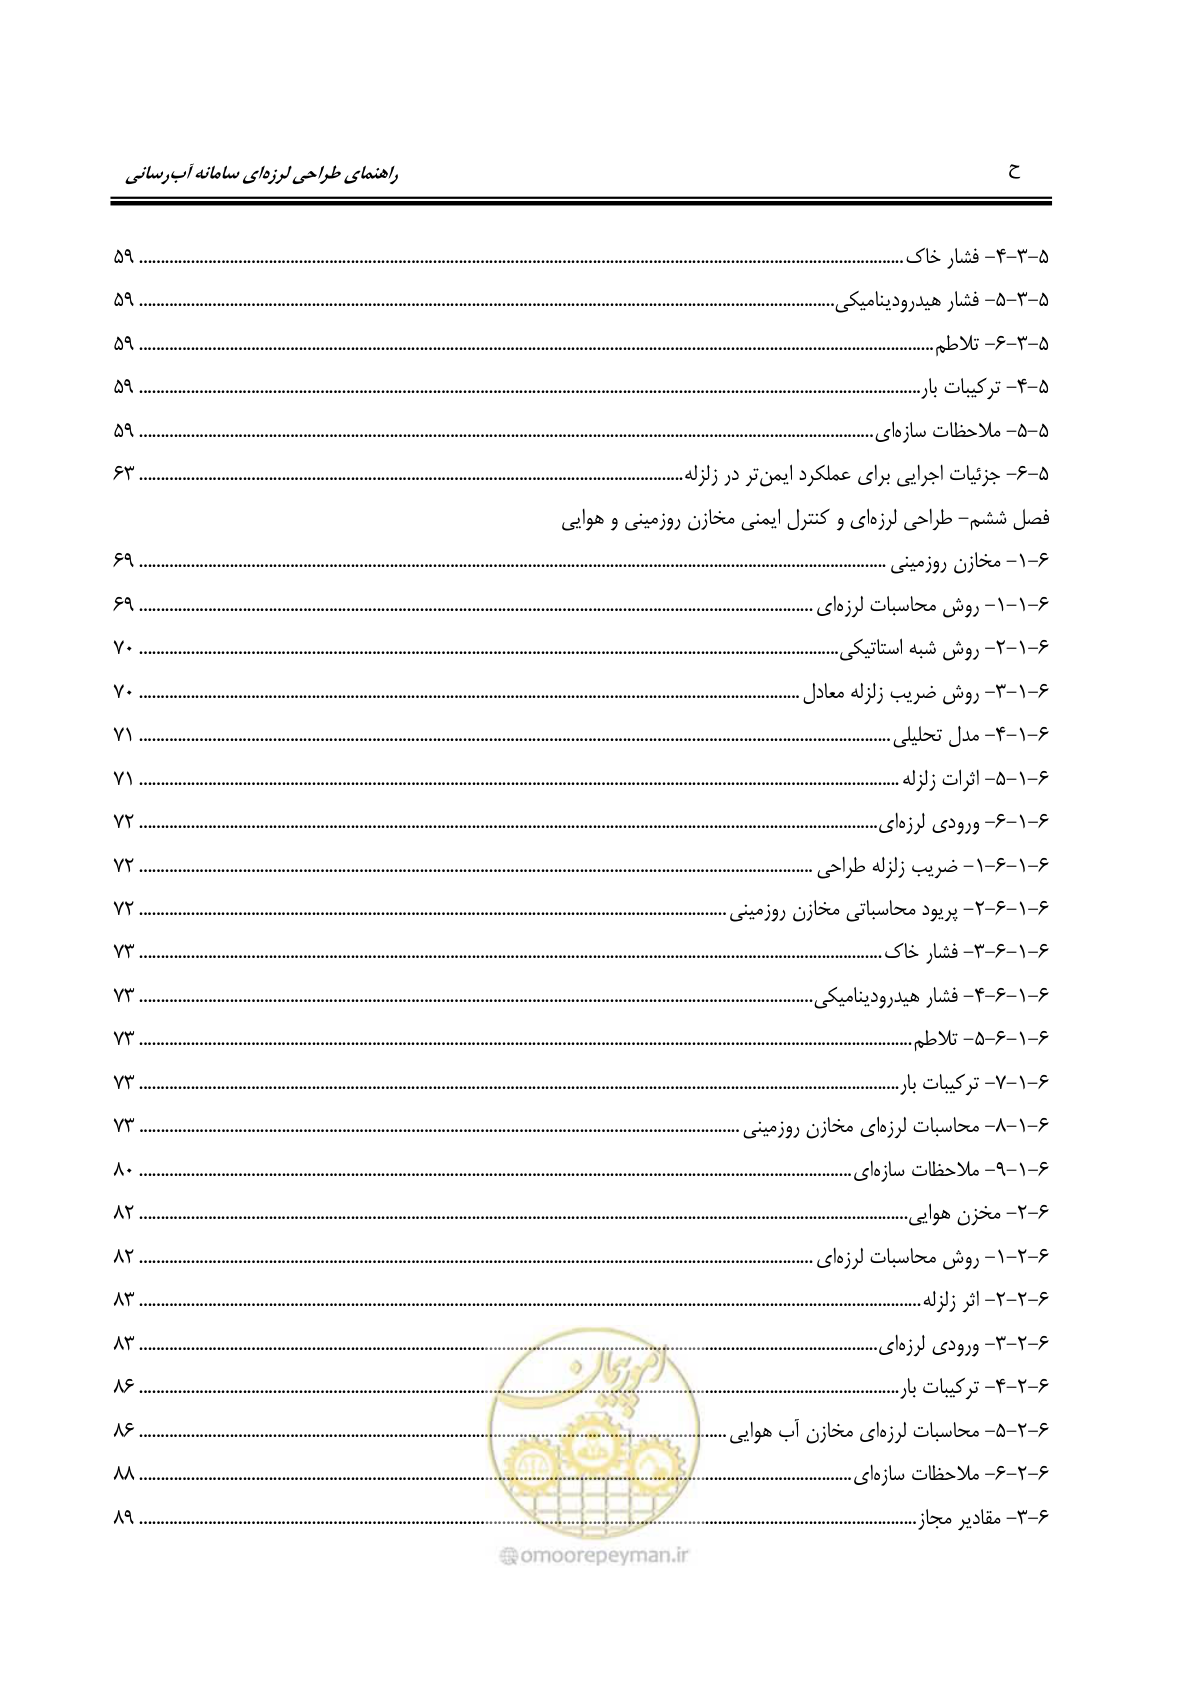 ح
راهنمای طراحی لرزه‌ای سامانه آب‌رسانی
۵-۳-۴- فشار خاک ۵۹
۵-۳-۵- فشار هیدرودینامیکی ۵۹
۵-۳-۶- تلاطم ۵۹
۵-۴- ترکیبات بار ۵۹
۵-۵- ملاحظات سازه‌ای ۵۹
۵-۶- جزئیات اجرایی برای عملکرد ایمن‌تر در زلزله ۶۳
فصل ششم- طراحی لرزه‌ای و کنترل ایمنی مخازن روزمینی و هوایی
۶-۱- مخازن روزمینی ۶۹
۶-۱-۱- روش محاسبات لرزه‌ای ۶۹
۶-۱-۲- روش شبه استاتیکی ۷۰
۶-۱-۳- روش ضریب زلزله معادل ۷۰
۶-۱-۴- مدل تحلیلی ۷۱
۶-۱-۵- اثرات زلزله ۷۱
۶-۱-۶- ورودی لرزه‌ای ۷۲
۶-۱-۶-۱- ضریب زلزله طراحی ۷۲
۶-۱-۶-۲- پریود محاسباتی مخازن روزمینی ۷۲
۶-۱-۶-۳- فشار خاک ۷۳
۶-۱-۶-۴- فشار هیدرودینامیکی ۷۳
۶-۱-۶-۵- تلاطم ۷۳
۶-۱-۷- ترکیبات بار ۷۳
۶-۱-۸- محاسبات لرزه‌ای مخازن روزمینی ۷۳
۶-۱-۹- ملاحظات سازه‌ای ۸۰
۶-۲- مخزن هوایی ۸۲
۶-۲-۱- روش محاسبات لرزه‌ای ۸۲
۶-۲-۲- اثر زلزله ۸۳
۶-۲-۳- ورودی لرزه‌ای ۸۳
۶-۲-۴- ترکیبات بار ۸۶
۶-۲-۵- محاسبات لرزه‌ای مخازن آب هوایی ۸۶
۶-۲-۶- ملاحظات سازه‌ای ۸۸
۶-۳- مقادیر مجاز ۸۹
امور پیمان
omoorepeyman.ir